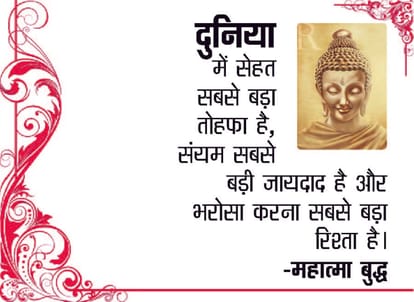 दुनिया
में सेहत
सबसे बड़ा
तोहफा है,
संयम सबसे
बड़ी जायदाद है और
भरोसा करना सबसे बड़ा
रिश्ता है।
-महात्मा बुद्ध
R